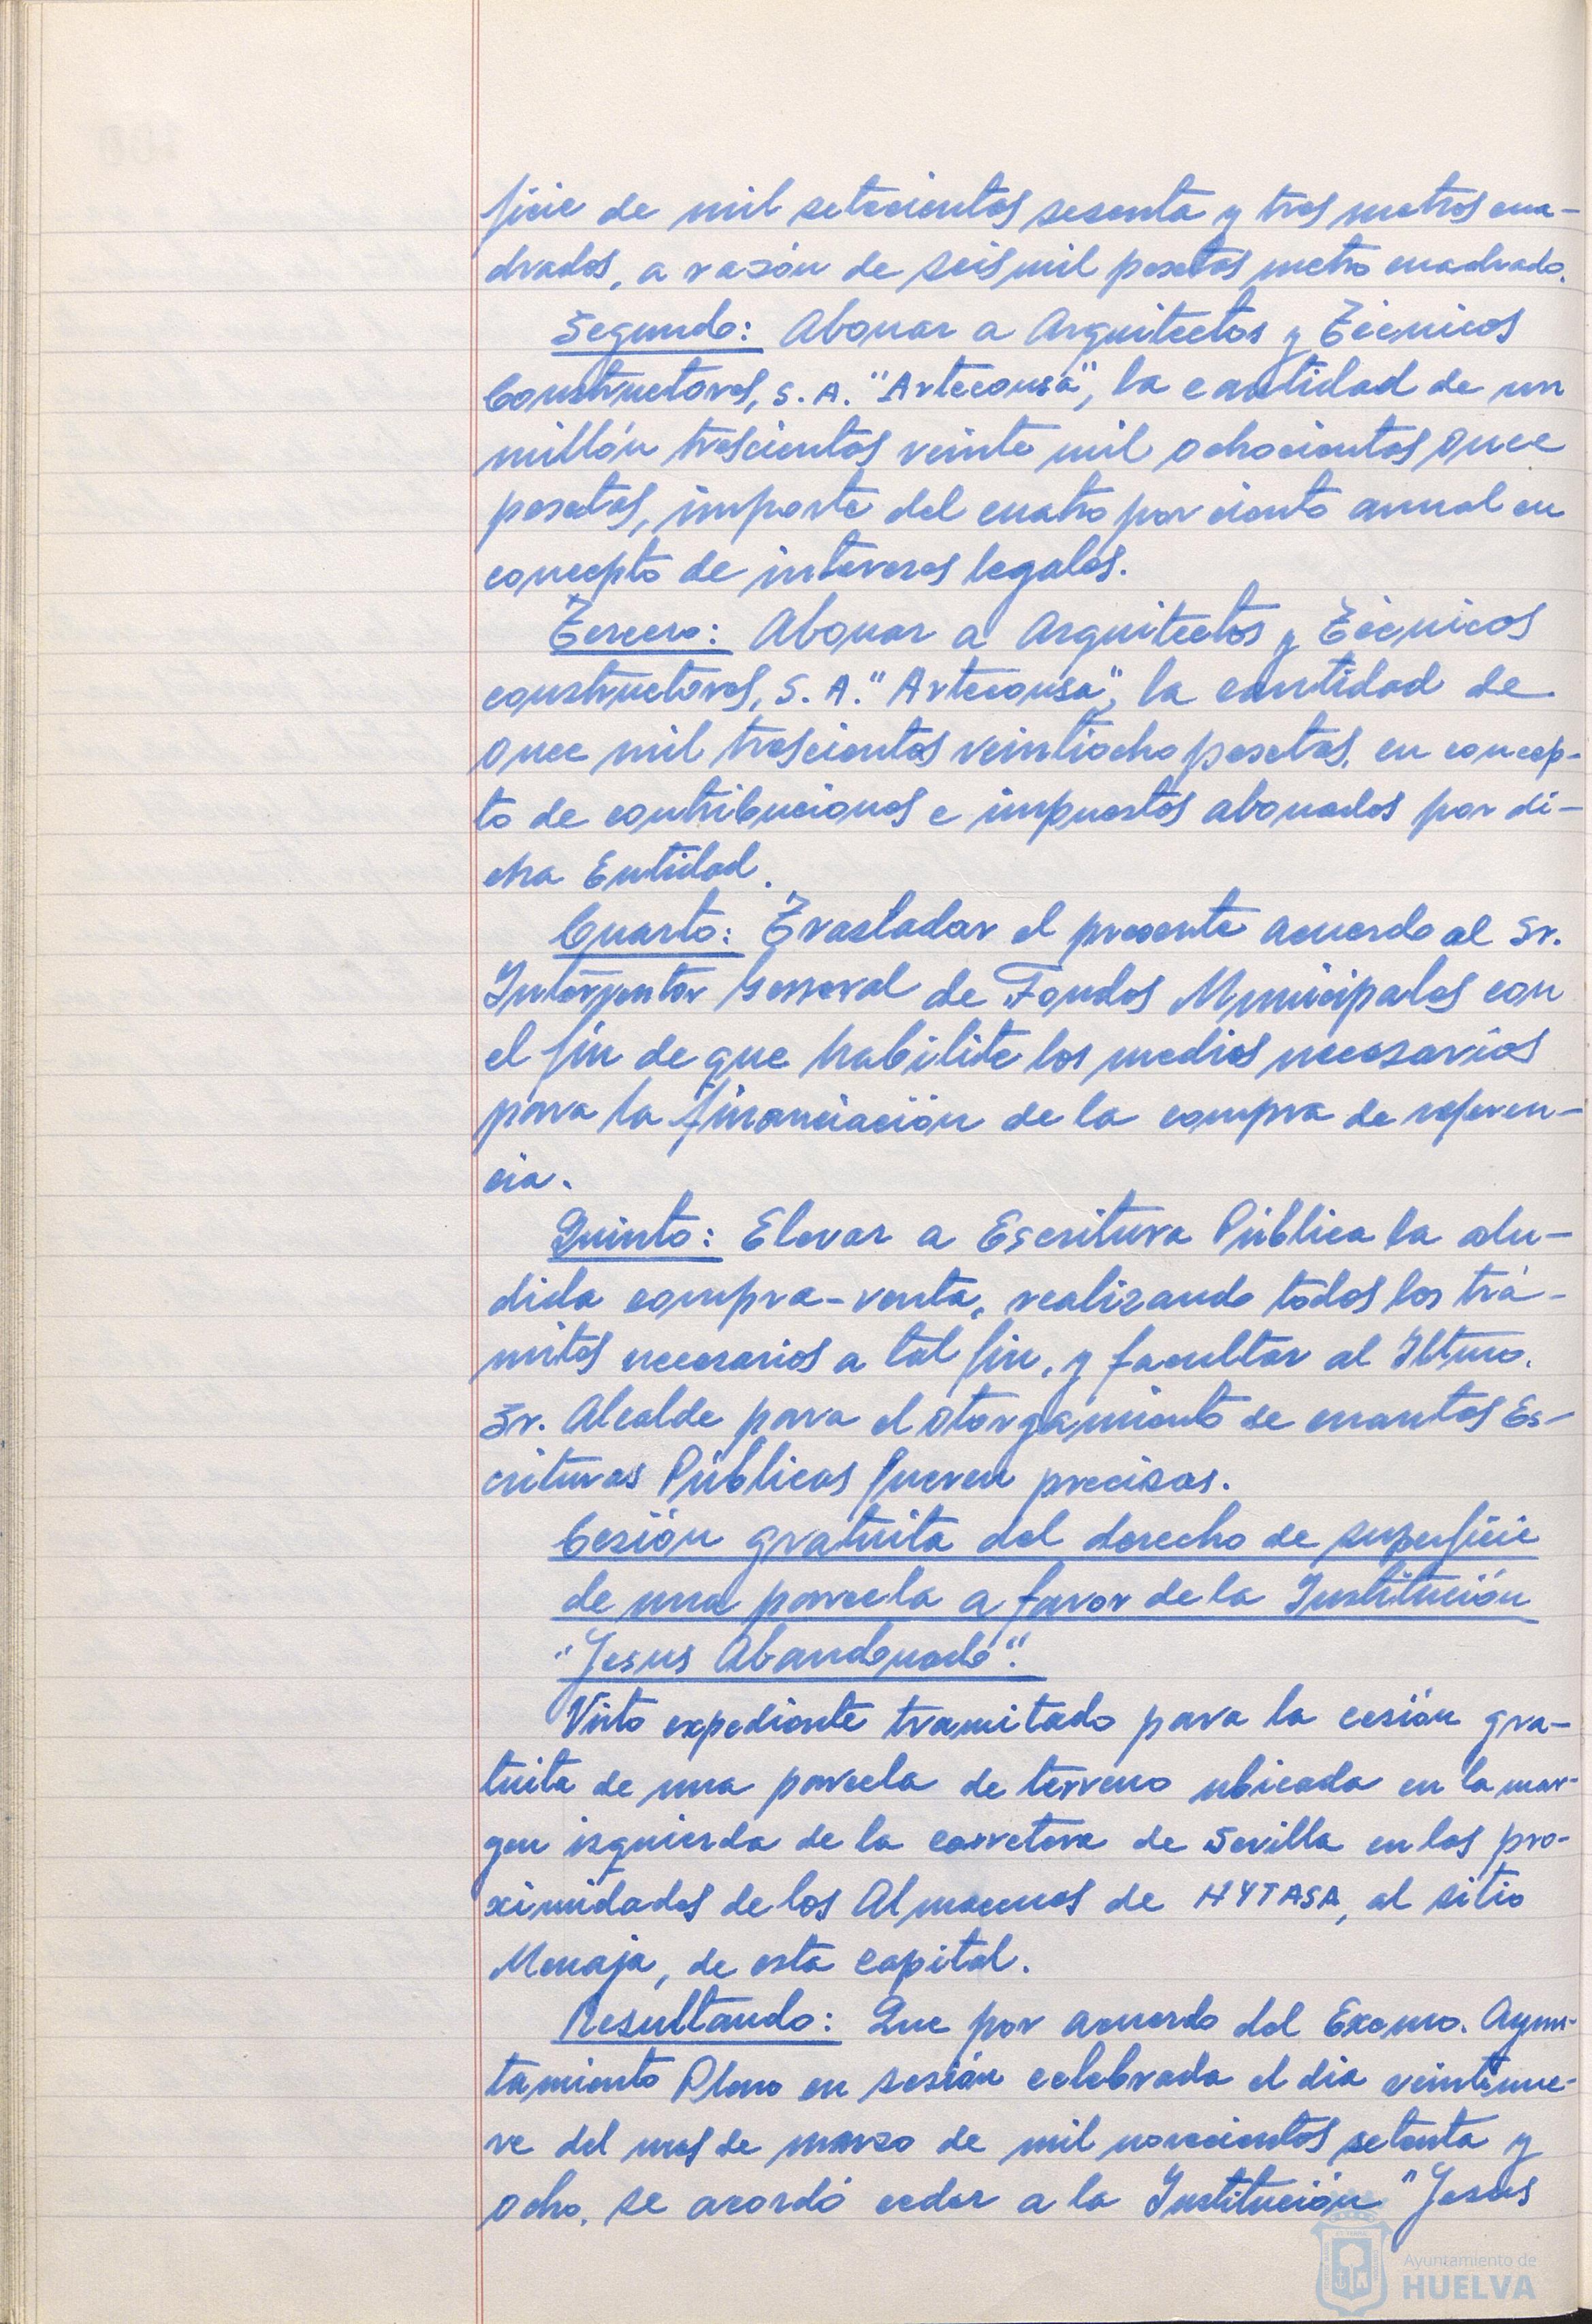 ficie de mil setecientos sesenta y tres metros cua-
drados, a razón de seis mil pesetas metro cuadrado.
Segundo: Abonar a Arquitectos y Técnicos
Constructores, S.A. "Arteconsa", la cantidad de un
millón trescientos veinte mil ochocientos once
pesetas, importe del cuatro por ciento anual en
concepto de intereses legales.
Tercero: Abonar a Arquitectos y Técnicos
constructores, S.A. "Arteconsa", la cantidad de
once mil trescientos veintiocho pesetas, en concep-
to de contribuciones e impuestos abonados por di-
cha Entidad.
Cuarto: Trasladar el presente acuerdo al Sr.
Interventor General de Fondos Municipales con
el fin de que habilite los medios necesarios
para la financiación de la compra de referen-
cia.
Quinto: Elevar a Escritura Pública la alu-
dida compra-venta, realizando todos los trá-
mites necesarios a tal fin, y facultar al Iltmo.
Sr. Alcalde para el otorgamiento de cuantas Es-
crituras Públicas fueren precisas.
Cesión gratuita del derecho de superficie
de una parcela a favor de la Institución
"Jesus Abandonado".
Visto expediente tramitado para la cesión gra-
tuita de una parcela de terreno ubicada en la mar-
gen izquierda de la carretera de Sevilla en las pro-
ximidades de los Almacenes de HYTASA, al sitio
Menaja, de esta capital.
Resultando: Que por acuerdo del Excmo. Ayun-
tamiento Pleno en sesión celebrada el dia veintinue-
ve del mes de marzo de mil novecientos setenta y
ocho, se acordó ceder a la Institución "Jesus
Ayuntamiento de
HUELVA